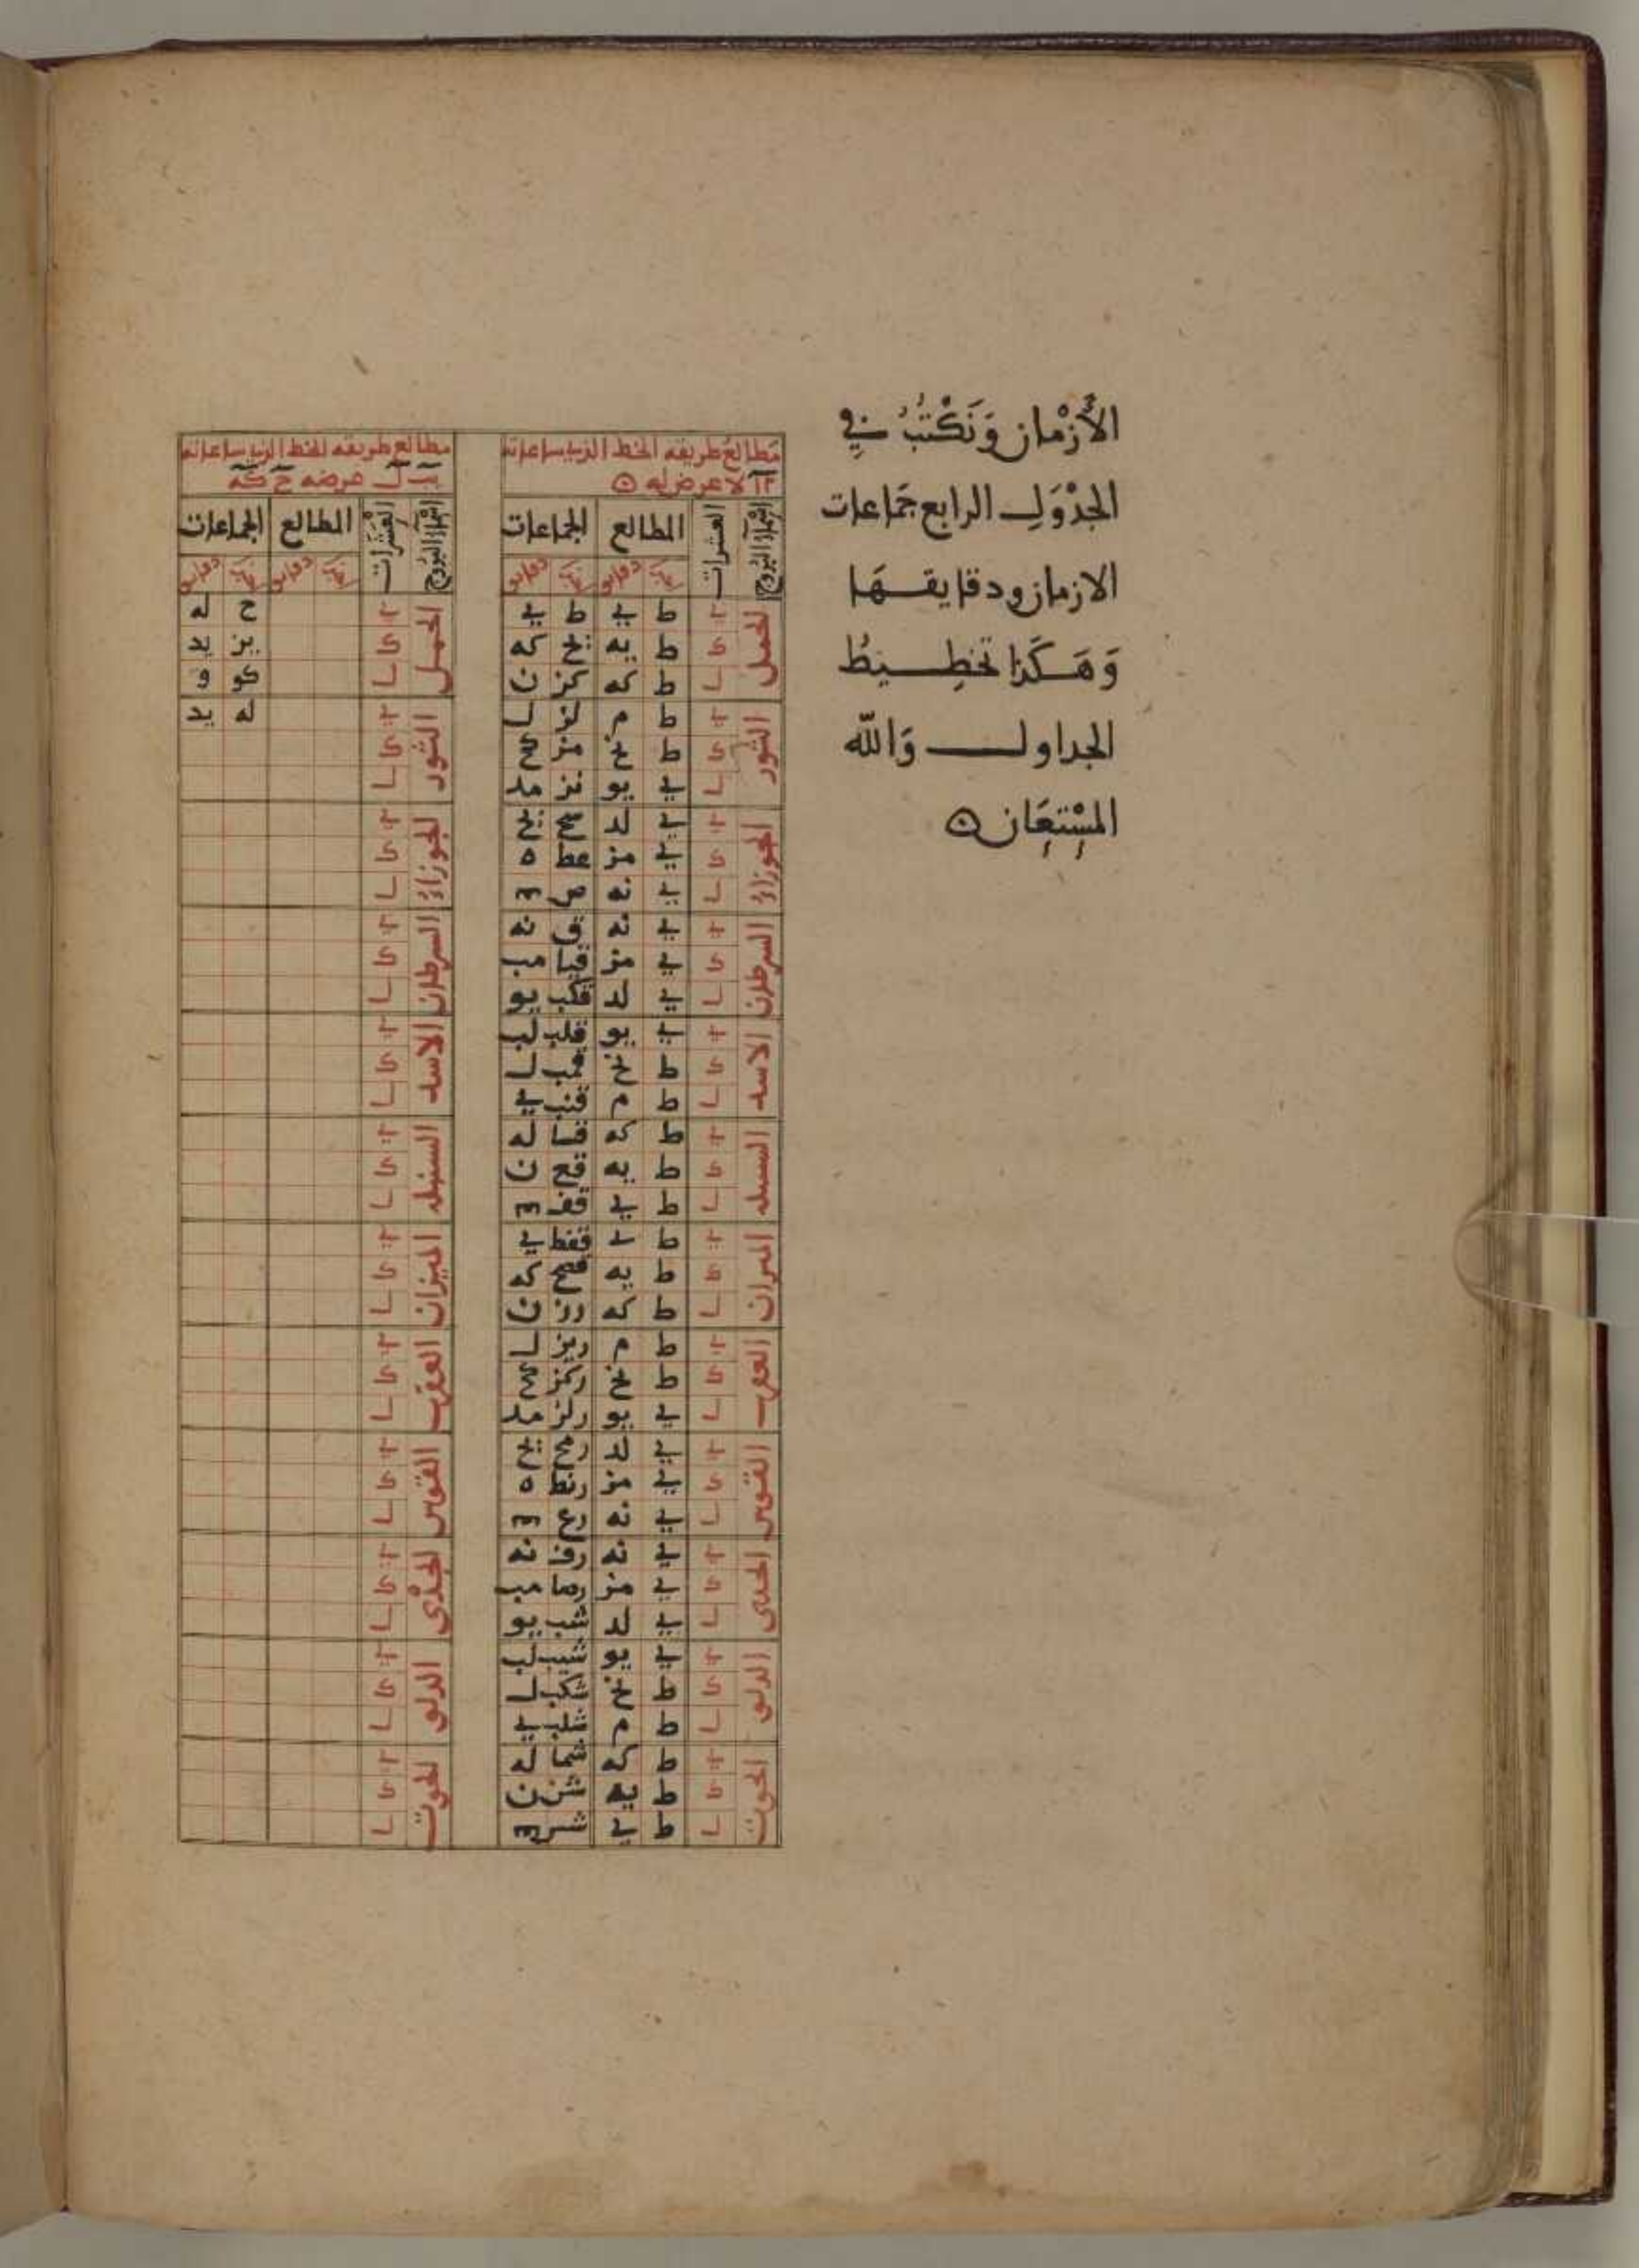 الأزمان وَنَكْتُبُ في
الجَدْوَلِ الرابع جَمَاعات
الازمان ودقايقهَا
وَهَكَذا تخطِيطُ
الجداول وَالله
المسْتعَان ه
مَطالع طريقه الخط الذي ساعاته
لا عرض له ه
اسْمَاء البُرُوج العشرات المطالع الجماعات
الحمل
ي ط ي ط ي
ك ط يه يح كه
ل ط كه كز ن
الثور
ي ط م لز ل
ك ط نح مز كح
ل ي يو نز مد
الجوزاء
ي ي لد سح يح
ك ي مز عط ه
ل ي نه ص
السرطان
ي ي نه ق نه
ك ي مز قيا مب
ل ي لد قكب يو
الاسد
ي ي يو قلب لب
ك ط نح قمب ل
ل ط م قنب ي
السنبله
ي ط كه قسا له
ك ط يه قع ن
ل ط ي قف
الميزان
ي ط ي قفط ي
ك ط يه قصح كه
ل ط كه رز ن
العقرب
ي ط م ريز ل
ك ط نح ركز كح
ل ي يو رلز مد
القوس
ي ي لد رمح يح
ك ي مز رنط ه
ل ي نه رع
الجدى
ي ي نه رف نه
ك ي مز رصا مب
ل ي لد شب يو
الدلو
ي ي يو شيب لب
ك ط نح شكب ل
ل ط م شلب ي
الحوت
ي ط كه شما له
ك ط يه شن ن
ل ط ي شس
مطالع طريقه الخط الذي ساعاته
عرضه ح كه
اسْمَاء البُرُوج العَشرَات المطالع الجماعات
الحمل
ي ح له
ك يز يد
ل كو و
الثور
ي له يد
ك
ل
الجوزاء
ي
ك
ل
السرطان
ي
ك
ل
الاسد
ي
ك
ل
السنبله
ي
ك
ل
الميزان
ي
ك
ل
العقرب
ي
ك
ل
القوس
ي
ك
ل
الجَدْى
ي
ك
ل
الدلو
ي
ك
ل
الحوت
ي
ك
ل